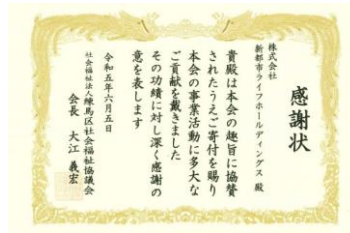 感謝状
株式会社
新都市ライフホールディングス 殿
貴殿は本会の趣旨に協賛
されたうえご寄付を賜り
本会の事業活動に多大な
ご貢献を戴きました
その功績に対し深く感謝の
意を表します
令和五年六月五日
社会福祉法人練馬区社会福祉協議会
会長 大江 義宏